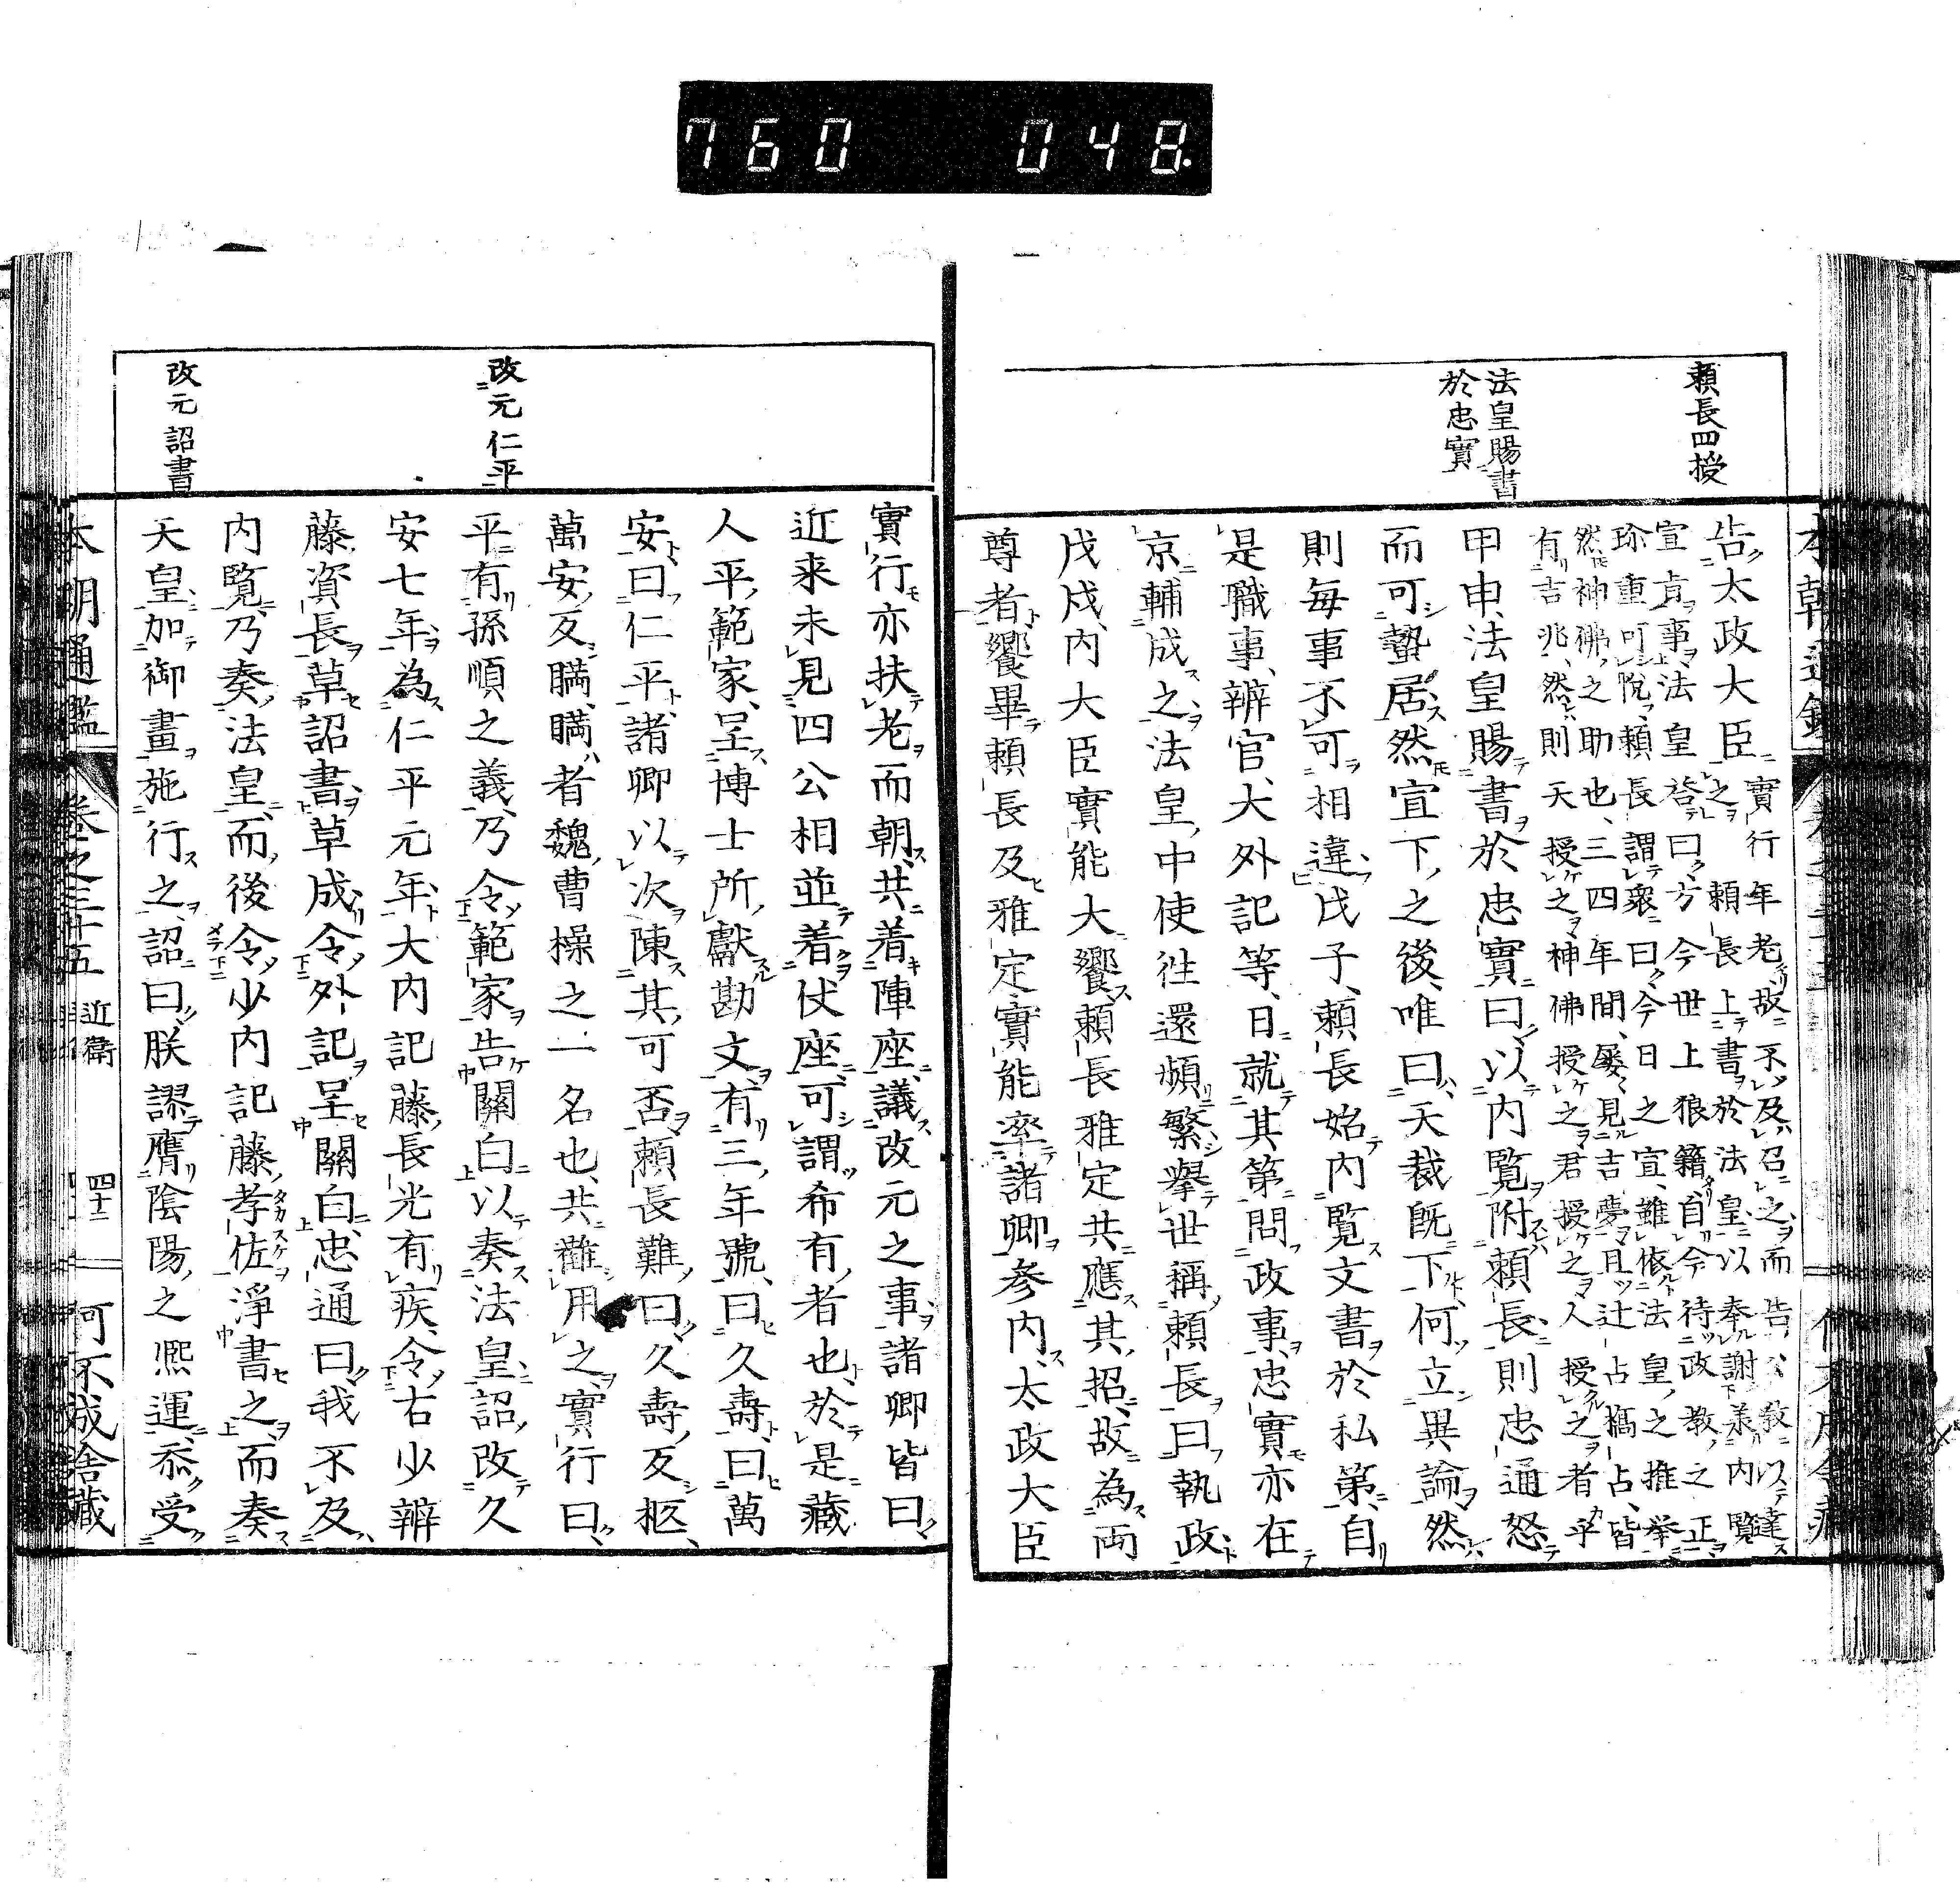 760 048
頼長四授
法皇賜書
於忠實
告太政大臣
實行年老故不及召之而告公教以達
之頼長上書於法皇以奉謝兼内覧
宣肯事法皇答曰方今世上狼籍自今待政教之正
珎重可悦頼長謂衆曰今日之宣雖依法皇之推挙
然神佛之助也三四年間屡見吉夢且辻占橋占皆
有吉兆然則天授之神佛授之君授之人授之者乎
甲申法皇賜書於忠實曰以内覧附頼長則忠通怒
而可蟄居然宣下之後唯曰天裁既下何立異論然
則毎事不可相違戊子頼長始内覧文書於私第自
是職事辨官大外記等日就其第問政事忠實亦在
京輔成之法皇中使徃還頻繁擧世稱頼長曰執政
戊戌内大臣實能大饗頼長雅定共應其招故為両
尊者饗畢頼長及雅定實能率諸卿参内太政大臣
改元仁平
改元詔書
實行亦扶老而朝共着陣座議改元之事諸卿皆曰
近来未見四公相並着仗座可謂希有者也於是藏
人平範家呈博士所獻勘文有三年號曰久壽曰萬
安曰仁平諸卿以次陳其可否頼長難曰久壽反柩
萬安反瞞瞞者魏曹操之一名也共難用之實行曰
平有孫順之義乃令範家告關白以奏法皇詔改久
安七年為仁平元年大内記藤長光有疾令右少辨
藤資長草詔書草成令外記呈關白忠通曰我不及
内覧乃奏法皇而後令少内記藤孝佐淨書之而奏
天皇加御畫施行之詔曰朕謬膺陰陽之熈運忝受
本朝通鑑 卷之三十五 近衛 四十二 何不成舎藏